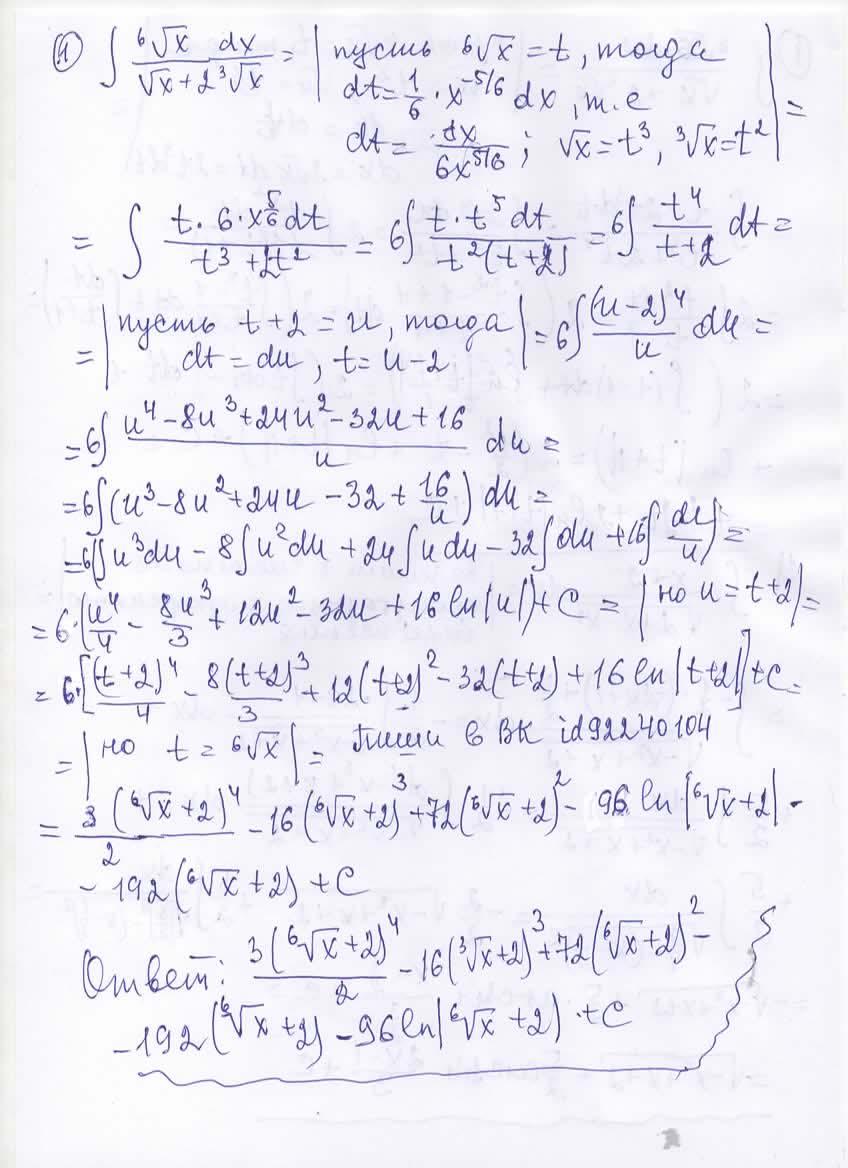 ① ∫ ⁶√x dx / (√x + 2 ³√x) = | пусть ⁶√x = t, тогда
dt = 1/6 · x^(-5/6) dx, т.е
dt = dx / 6x^(5/6) ; √x = t³, ³√x = t² | =
= ∫ t · 6 · x^(5/6) dt / (t³ + 2t²) = 6∫ t · t⁵ dt / t²(t+2) = 6∫ t⁴/(t+2) dt =
= | пусть t+2 = u, тогда
dt = du, t = u-2 | = 6∫ (u-2)⁴/u du =
= 6∫ (u⁴ - 8u³ + 24u² - 32u + 16)/u du =
= 6∫(u³ - 8u² + 24u - 32 + 16/u) du =
= 6(∫u³du - 8∫u²du + 24∫u du - 32∫du + 16∫du/u) =
= 6·[u⁴/4 - 8u³/3 + 12u² - 32u + 16 ln|u|] + C = | но u = t+2 | =
= 6·[(t+2)⁴/4 - 8(t+2)³/3 + 12(t+2)² - 32(t+2) + 16 ln|t+2|] + C =
= | но t = ⁶√x | = Пиши в ВК id92240104
= 3(⁶√x+2)⁴/2 - 16(⁶√x+2)³ + 72(⁶√x+2)² - 96 ln|⁶√x+2| -
- 192(⁶√x+2) + C
Ответ: 3(⁶√x+2)⁴/2 - 16(³√x+2)³ + 72(⁶√x+2)² -
- 192(⁶√x+2) - 96 ln|⁶√x+2) + C